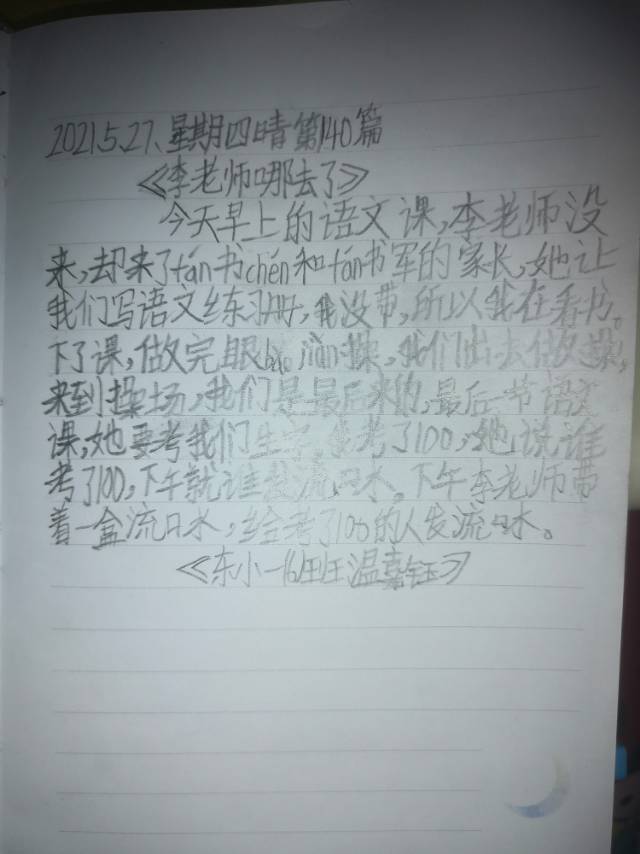 2021.5.27.星期四晴第140篇
《李老师哪去了》
今天早上的语文课,李老师没
来,却来了fán书chén和fán书军的家长,她让
我们写语文练习册,我没带,所以我在看书。
下了课,做完眼bǎo jiàn操,我们出去做操,
来到操场,我们是最后来的,最后一节语文
课,她要考我们生字,我考了100,她说谁
考了100,下午就谁发流口水。下午李老师带
着一盒流口水,给考了100的人发流口水。
《东小一16班温嘉钰》